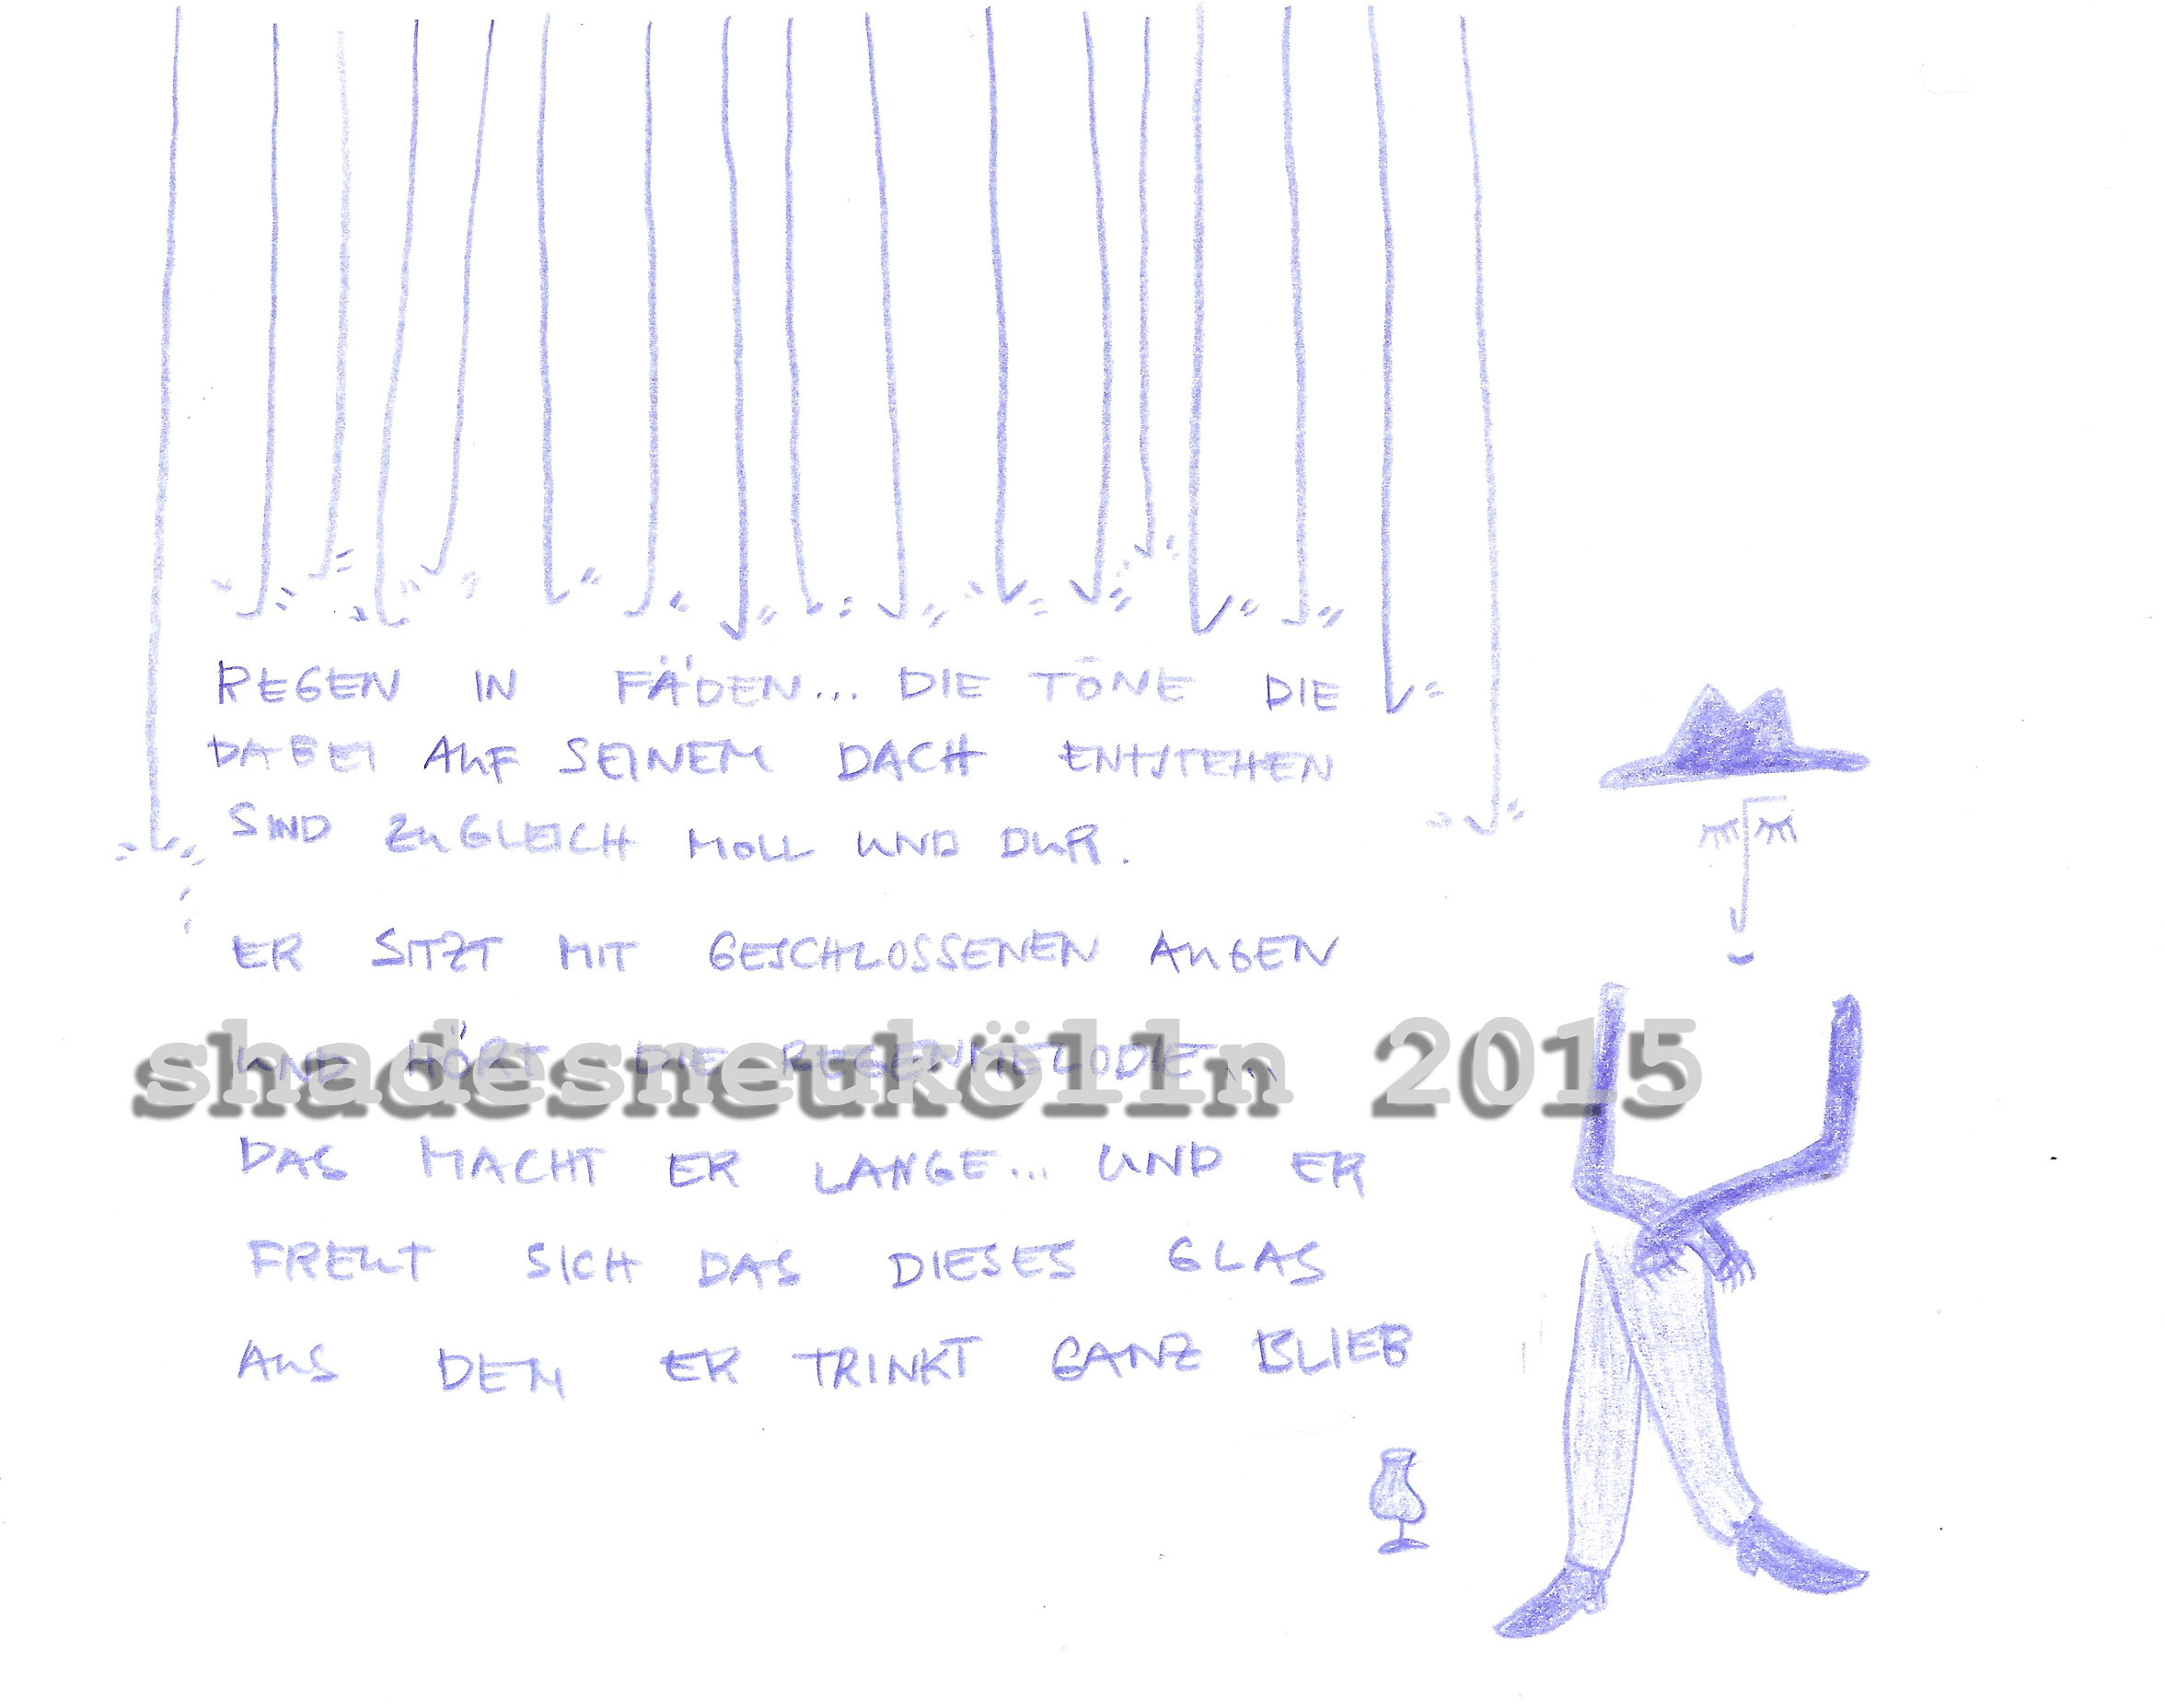 REGEN IN FÄDEN... DIE TÖNE DIE
DABEI AUF SEINEM DACH ENTSTEHEN
SIND ZUGLEICH MOLL UND DUR.
ER SITZT MIT GESCHLOSSENEN AUGEN
UND HÖRT DIE REGENMELODIE...
shadesneukölln 2015
DAS MACHT ER LANGE... UND ER
FREUT SICH DAS DIESES GLAS
AUS DEM ER TRINKT GANZ BLIEB